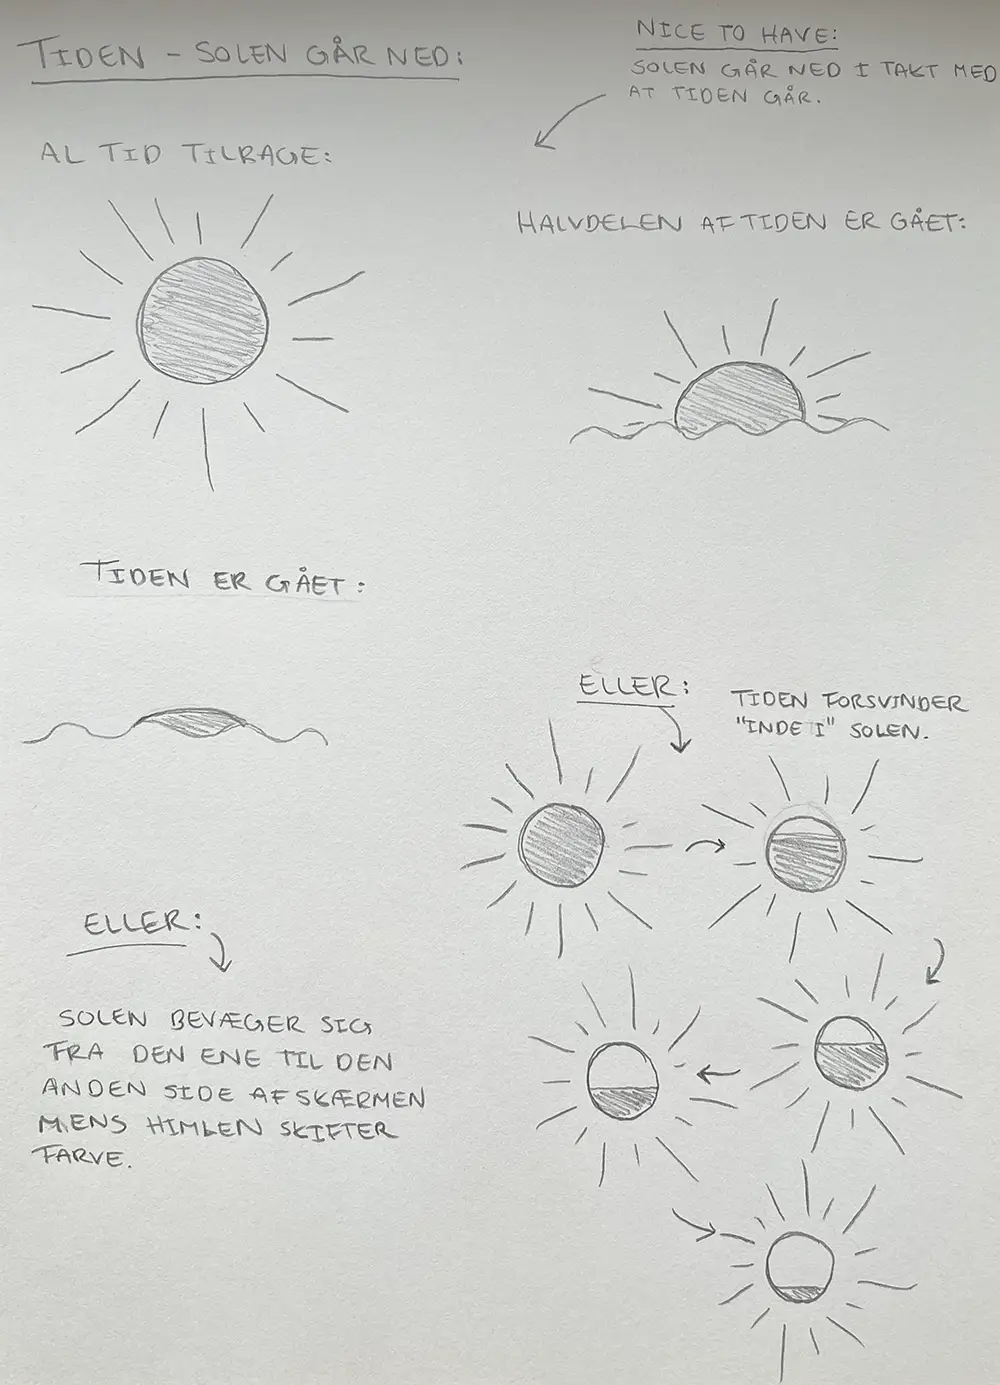 TIDEN - SOLEN GÅR NED:
NICE TO HAVE:
SOLEN GÅR NED I TAKT MED
AT TIDEN GÅR.
AL TID TILBAGE:
HALVDELEN AF TIDEN ER GÅET:
TIDEN ER GÅET:
ELLER:
TIDEN FORSVINDER
"INDE I" SOLEN.
ELLER:
SOLEN BEVÆGER SIG
FRA DEN ENE TIL DEN
ANDEN SIDE AF SKÆRMEN
MENS HIMLEN SKIFTER
FARVE.